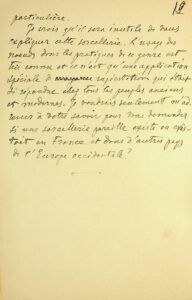 18
particulière.
Je crois qu'il sera inutile de vous
expliquer cette sorcellerie. L'usage des
noeuds dans les pratiques de ce genre est
très connu et ce n'est qu'une application
spéciale de superstition qui était
si répandue chez tous les peuples anciens
et modernes. Je voudrais seulement m'ad-
resser à votre savoir pour vous demander
si une sorcellerie pareille existe ou exis-
tait en France et dans d'autres pays
de l'Europe occidentale?